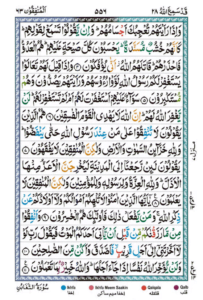 قَدْ سَمِعَ اللّٰهُ ٢٨ ٥٥٦ الْمُنٰفِقُوْنَ ٦٣
وَاِذَا رَاَيْتَهُمْ تُعْجِبُكَ اَجْسَامُهُمْ وَاِنْ يَّقُوْلُوْا تَسْمَعْ لِقَوْلِهِمْ
كَاَنَّهُمْ خُشُبٌ مُّسَنَّدَةٌ يَحْسَبُوْنَ كُلَّ صَيْحَةٍ عَلَيْهِمْ هُمُ الْعَدُوُّ
فَاحْذَرْهُمْ قَاتَلَهُمُ اللّٰهُ اَنّٰى يُؤْفَكُوْنَ وَاِذَا قِيْلَ لَهُمْ تَعَالَوْا
يَسْتَغْفِرْ لَكُمْ رَسُوْلُ اللّٰهِ لَوَّوْا رُءُوْسَهُمْ وَرَاَيْتَهُمْ يَصُدُّوْنَ وَهُمْ
مُّسْتَكْبِرُوْنَ سَوَآءٌ عَلَيْهِمْ اَسْتَغْفَرْتَ لَهُمْ اَمْ لَمْ تَسْتَغْفِرْ لَهُمْ
لَنْ يَّغْفِرَ اللّٰهُ لَهُمْ اِنَّ اللّٰهَ لَا يَهْدِى الْقَوْمَ الْفٰسِقِيْنَ هُمُ الَّذِيْنَ
يَقُوْلُوْنَ لَا تُنْفِقُوْا عَلٰى مَنْ عِنْدَ رَسُوْلِ اللّٰهِ حَتّٰى يَنْفَضُّوْا
وَلِلّٰهِ خَزَآئِنُ السَّمٰوٰتِ وَالْاَرْضِ وَلٰكِنَّ الْمُنٰفِقِيْنَ لَا يَفْقَهُوْنَ
يَقُوْلُوْنَ لَئِنْ رَّجَعْنَآ اِلَى الْمَدِيْنَةِ لَيُخْرِجَنَّ الْاَعَزُّ مِنْهَا
الْاَذَلَّ وَلِلّٰهِ الْعِزَّةُ وَلِرَسُوْلِهٖ وَلِلْمُؤْمِنِيْنَ وَلٰكِنَّ الْمُنٰفِقِيْنَ لَا
يَعْلَمُوْنَ يٰٓاَيُّهَا الَّذِيْنَ اٰمَنُوْا لَا تُلْهِكُمْ اَمْوَالُكُمْ وَلَآ اَوْلَادُكُمْ عَنْ
ذِكْرِ اللّٰهِ وَمَنْ يَّفْعَلْ ذٰلِكَ فَاُولٰٓئِكَ هُمُ الْخٰسِرُوْنَ وَاَنْفِقُوْا
مِنْ مَّا رَزَقْنٰكُمْ مِّنْ قَبْلِ اَنْ يَّاْتِىَ اَحَدَكُمُ الْمَوْتُ فَيَقُوْلَ رَبِّ
لَوْلَآ اَخَّرْتَنِيْٓ اِلٰٓى اَجَلٍ قَرِيْبٍ فَاَصَّدَّقَ وَاَكُنْ مِّنَ الصّٰلِحِيْنَ
وَلَنْ يُّؤَخِّرَ اللّٰهُ نَفْسًا اِذَا جَآءَ اَجَلُهَا وَاللّٰهُ خَبِيْرٌۢ بِمَا تَعْمَلُوْنَ
Ikhfa Ikhfa Meem Saakin Qalqala Qalb